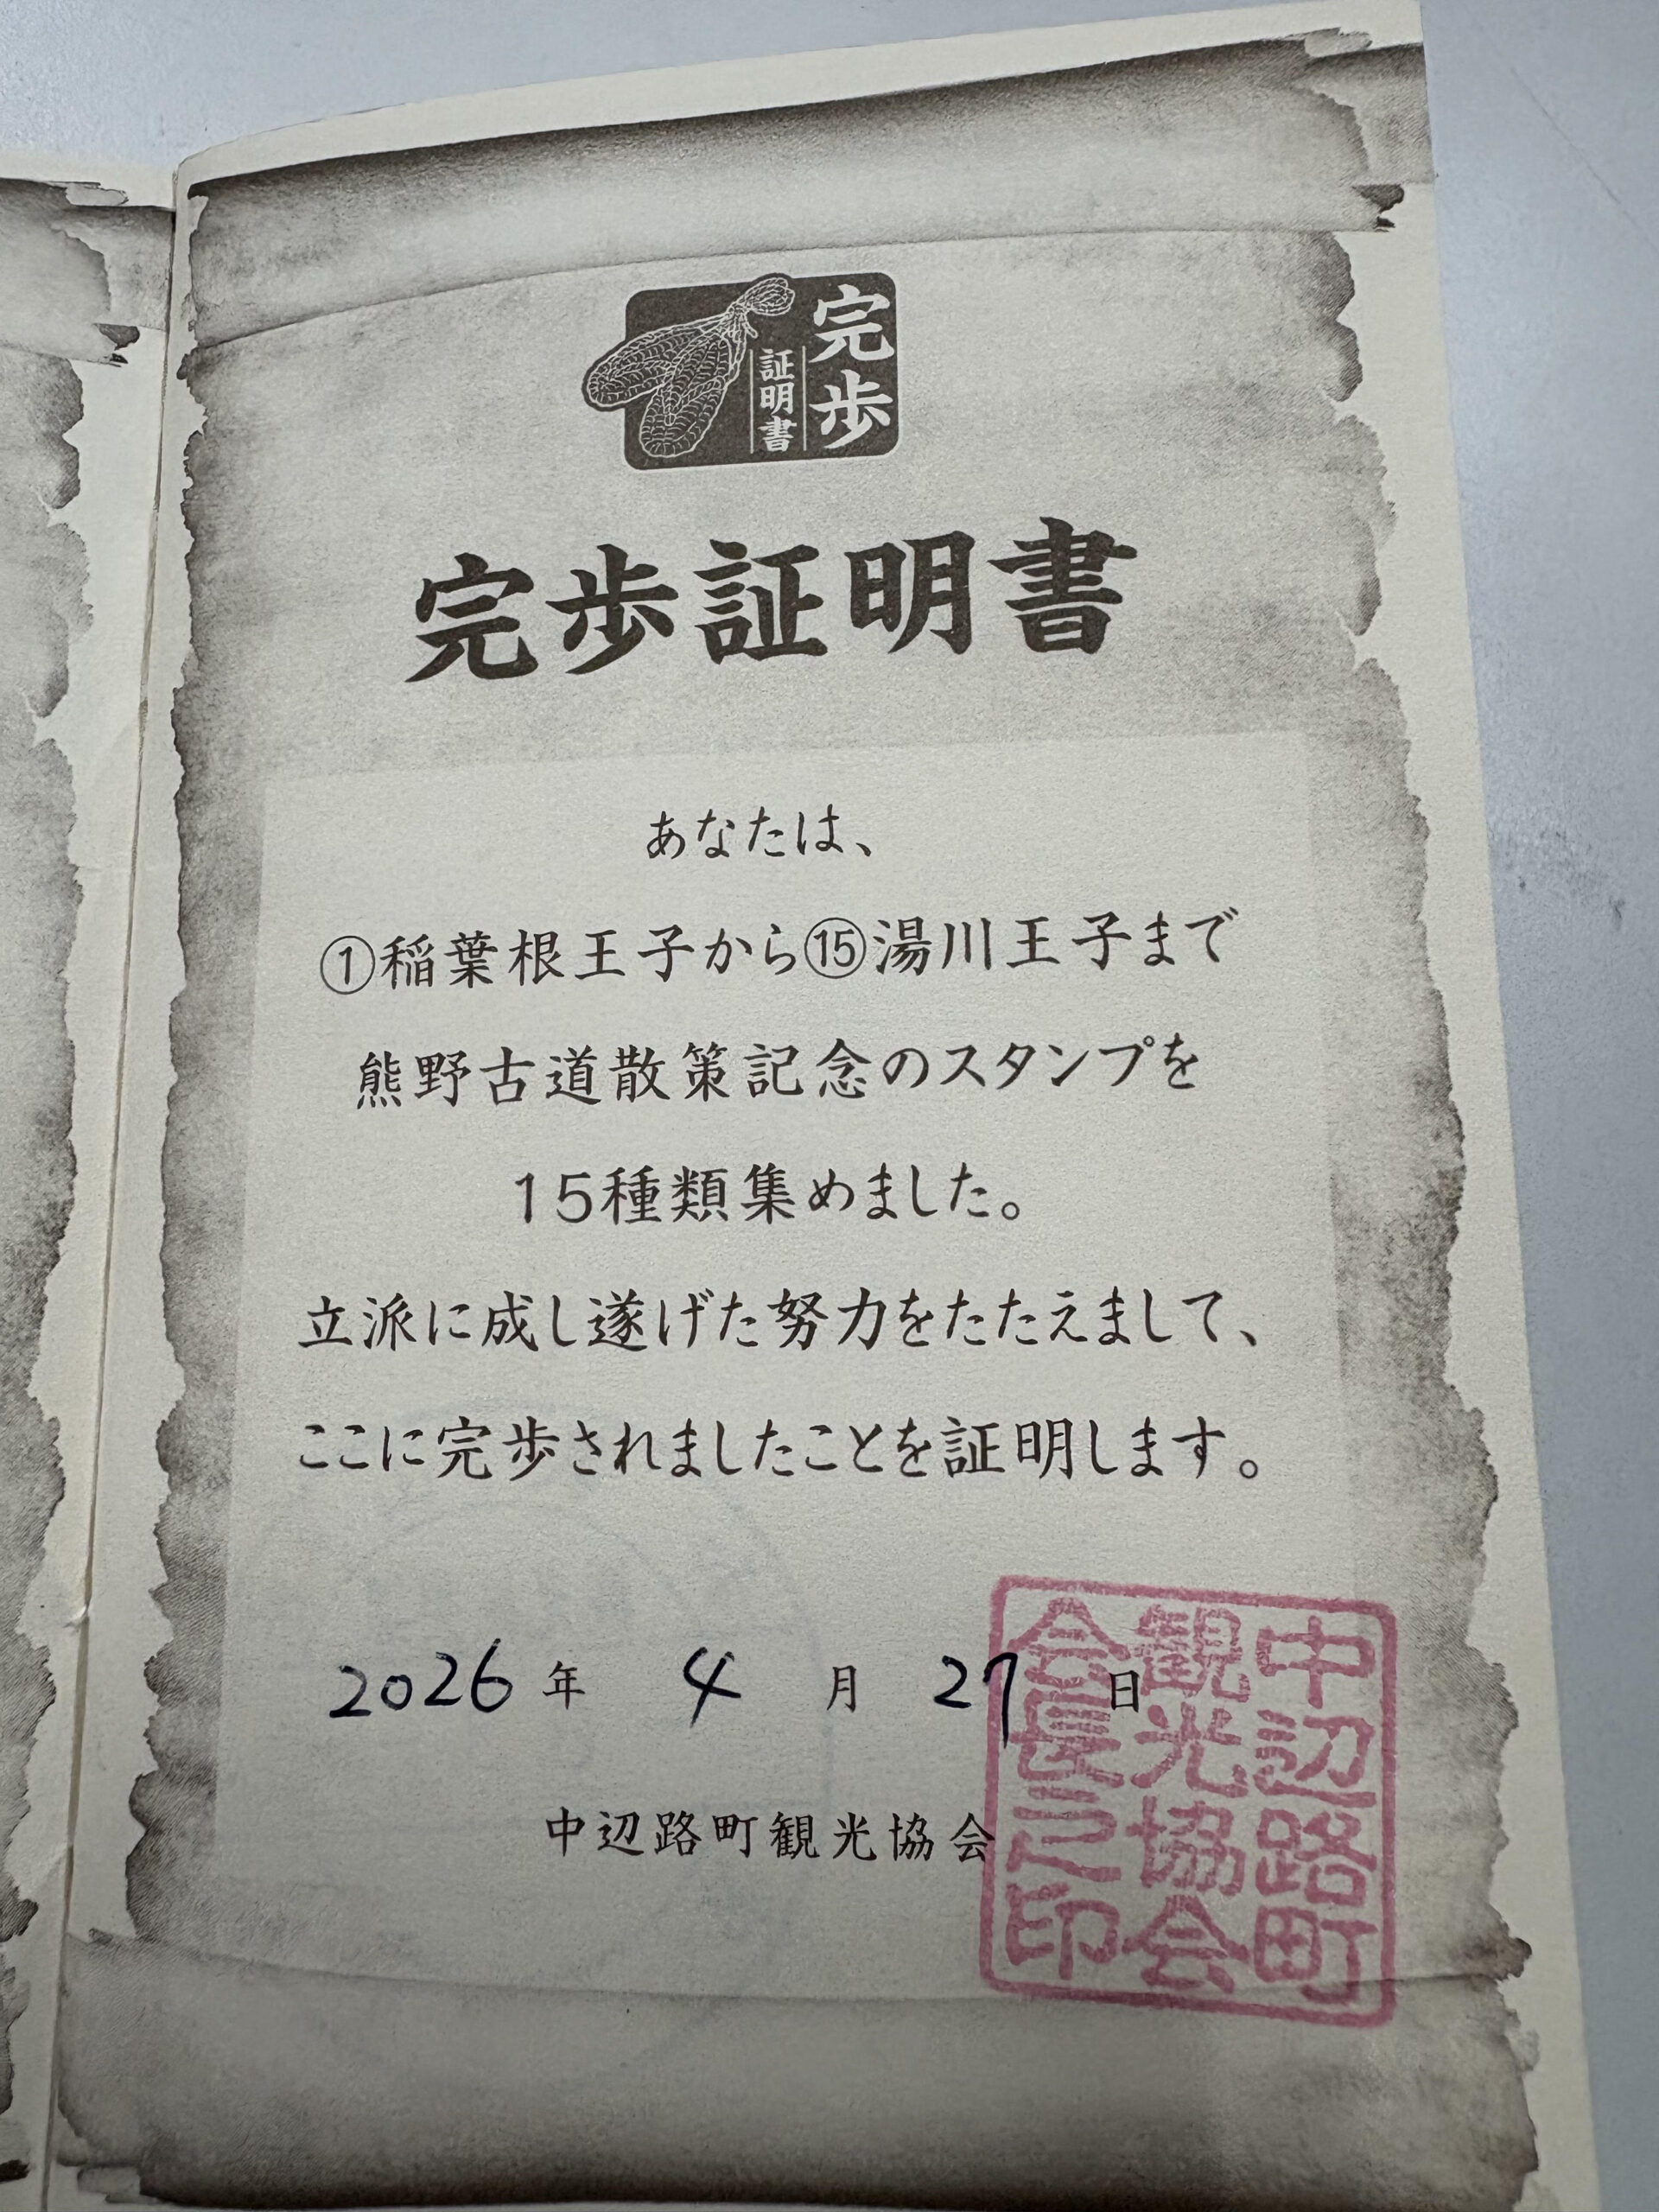 完歩
証明書
完歩証明書
あなたは、
①稲葉根王子から⑮湯川王子まで
熊野古道散策記念のスタンプを
15種類集めました。
立派に成し遂げた努力をたたえまして、
ここに完歩されましたことを証明します。
2026年 4月 27日
中辺路町観光協会
中辺路町
観光協会
会長之印